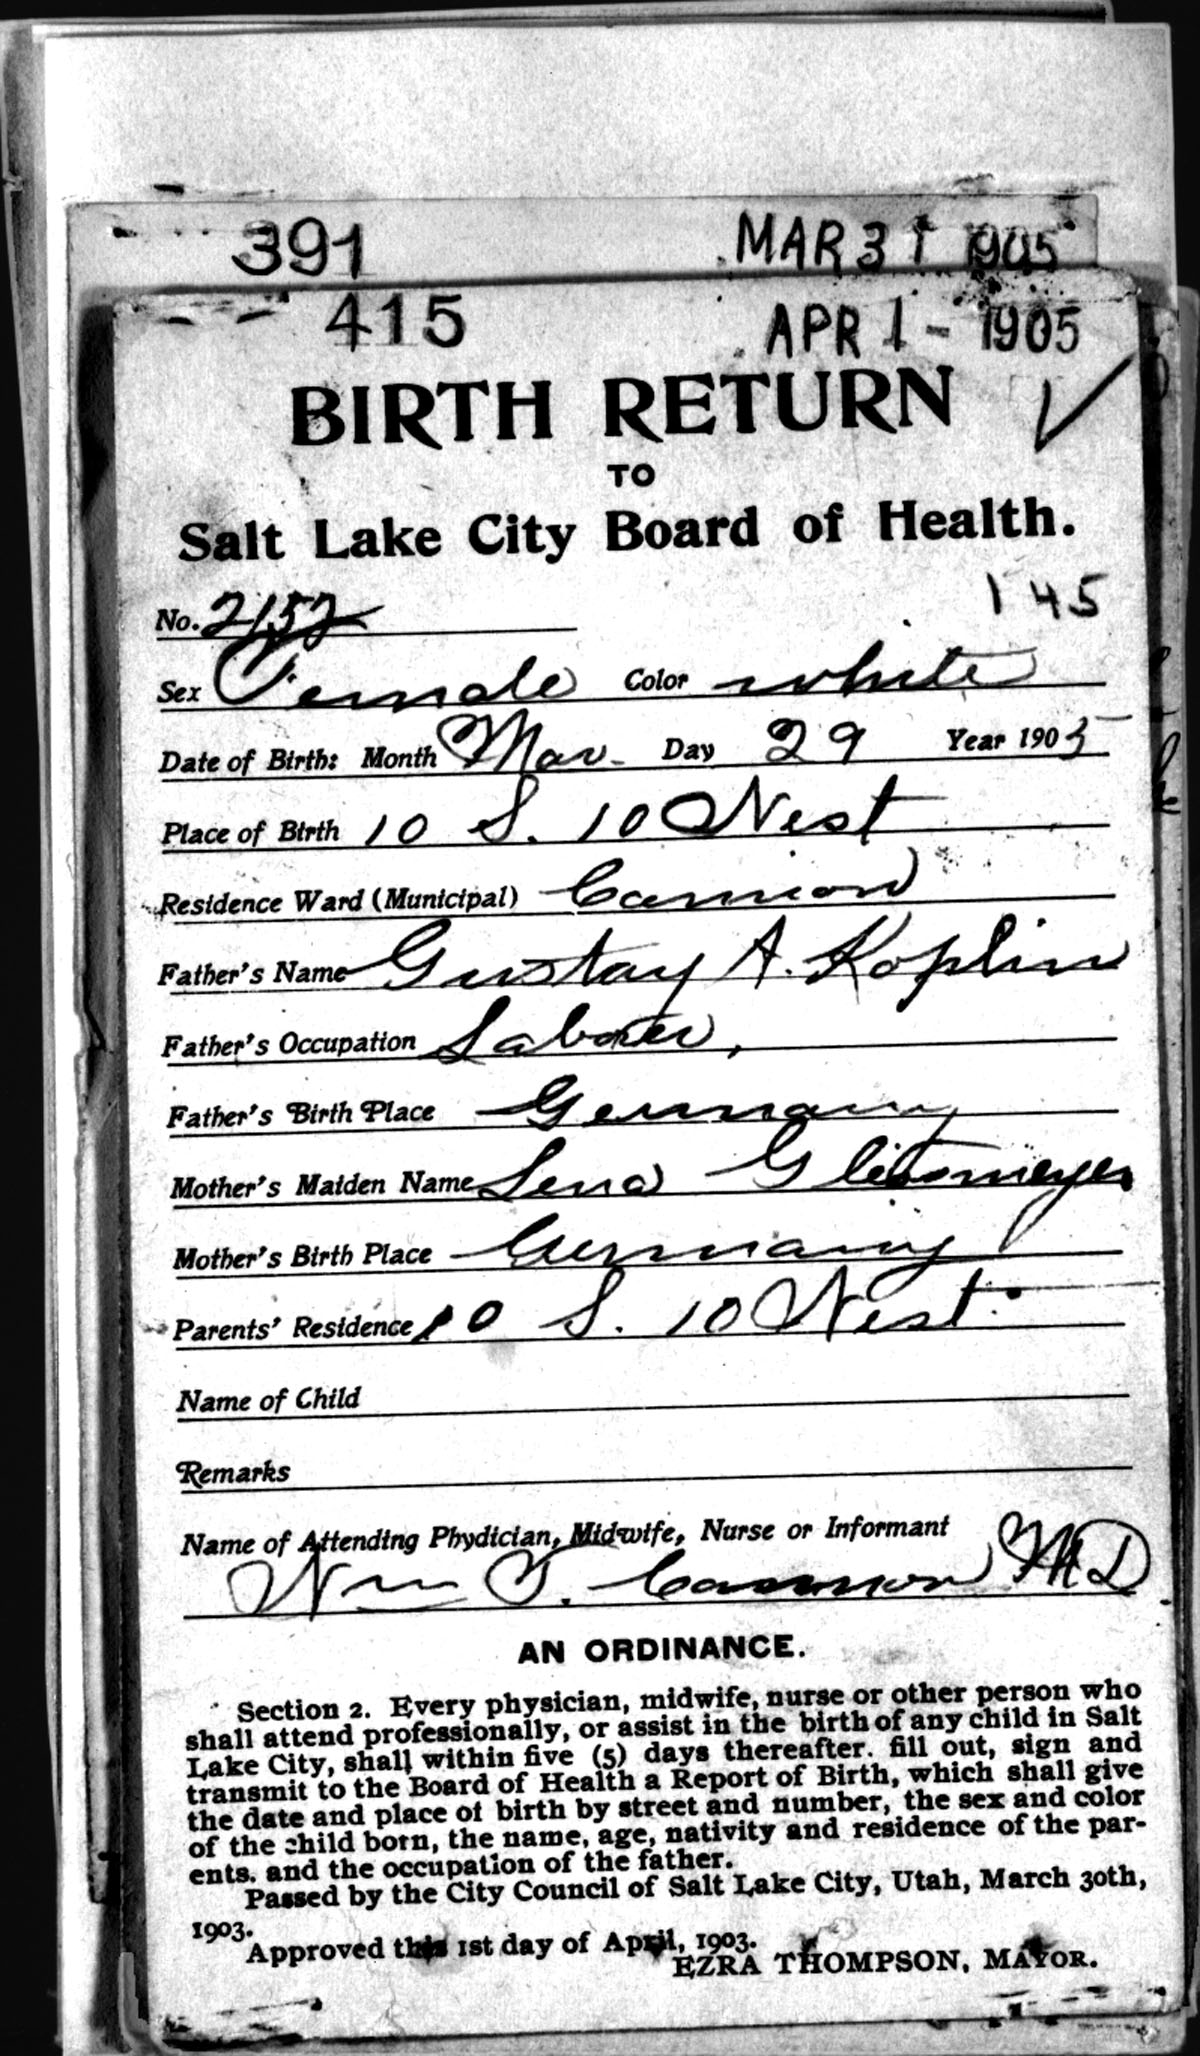 391 MAR 31 1905
415 APR 1 - 1905
BIRTH RETURN
TO
Salt Lake City Board of Health.
145
No. 2152
Sex Female Color white
Date of Birth: Month Mar. Day 29 Year 1905
Place of Birth 10 S. 10 West
Residence Ward (Municipal) Cannon
Father's Name Gustav A. Koplin
Father's Occupation Laborer,
Father's Birth Place Germany
Mother's Maiden Name Lena
Mother's Birth Place Germany
Parents' Residence 10 S. 10 West.
Name of Child
Remarks
Name of Attending Phydician, Midwife, Nurse or Informant
Wm T. Cannon MD
AN ORDINANCE.
Section 2. Every physician, midwife, nurse or other person who
shall attend professionally, or assist in the birth of any child in Salt
Lake City, shall within five (5) days thereafter. fill out, sign and
transmit to the Board of Health a Report of Birth, which shall give
the date and place of birth by street and number, the sex and color
of the child born, the name, age, nativity and residence of the par-
ents. and the occupation of the father.
Passed by the City Council of Salt Lake City, Utah, March 30th,
1903.
Approved this 1st day of April, 1903.
EZRA THOMPSON, MAYOR.